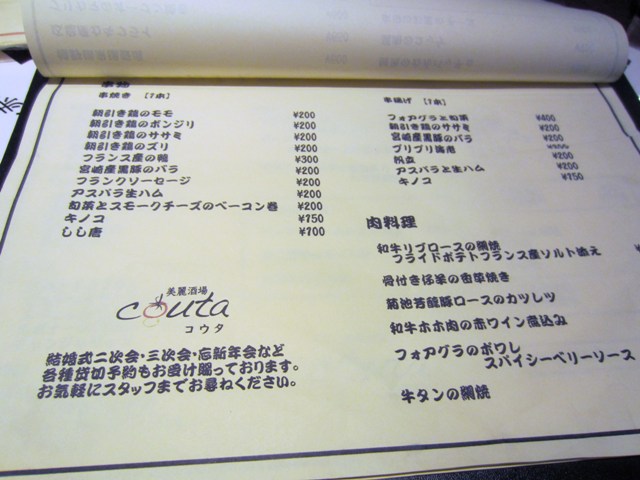 串焼き 【1本】
朝引き鶏のモモ ¥200
朝引き鶏のボンジリ ¥200
朝引き鶏のササミ ¥200
朝引き鶏のズリ ¥200
フランス産の鴨 ¥300
宮崎産黒豚のバラ ¥200
フランクソーセージ ¥200
アスパラ生ハム ¥200
旬菜とスモークチーズのベーコン巻 ¥200
キノコ ¥150
しし唐 ¥100
美麗酒場
couta
コウタ
結婚式二次会・三次会・忘新年会など
各種貸切予約もお受け賜っております。
お気軽にスタッフまでお尋ねください。
串揚げ 【1本】
フォアグラと旬菜 ¥400
朝引き鶏のササミ ¥200
宮崎産黒豚のバラ ¥200
プリプリ海老
帆立 ¥200
アスパラと生ハム ¥200
キノコ ¥150
肉料理
和牛リブロースの網焼
フライドポテトフランス産ソルト添え
骨付き仔羊の香草焼き
菊池芳醇豚ロースのカツレツ
和牛ホホ肉の赤ワイン煮込み
フォアグラのポワレ
スパイシーベリーソース
牛タンの網焼